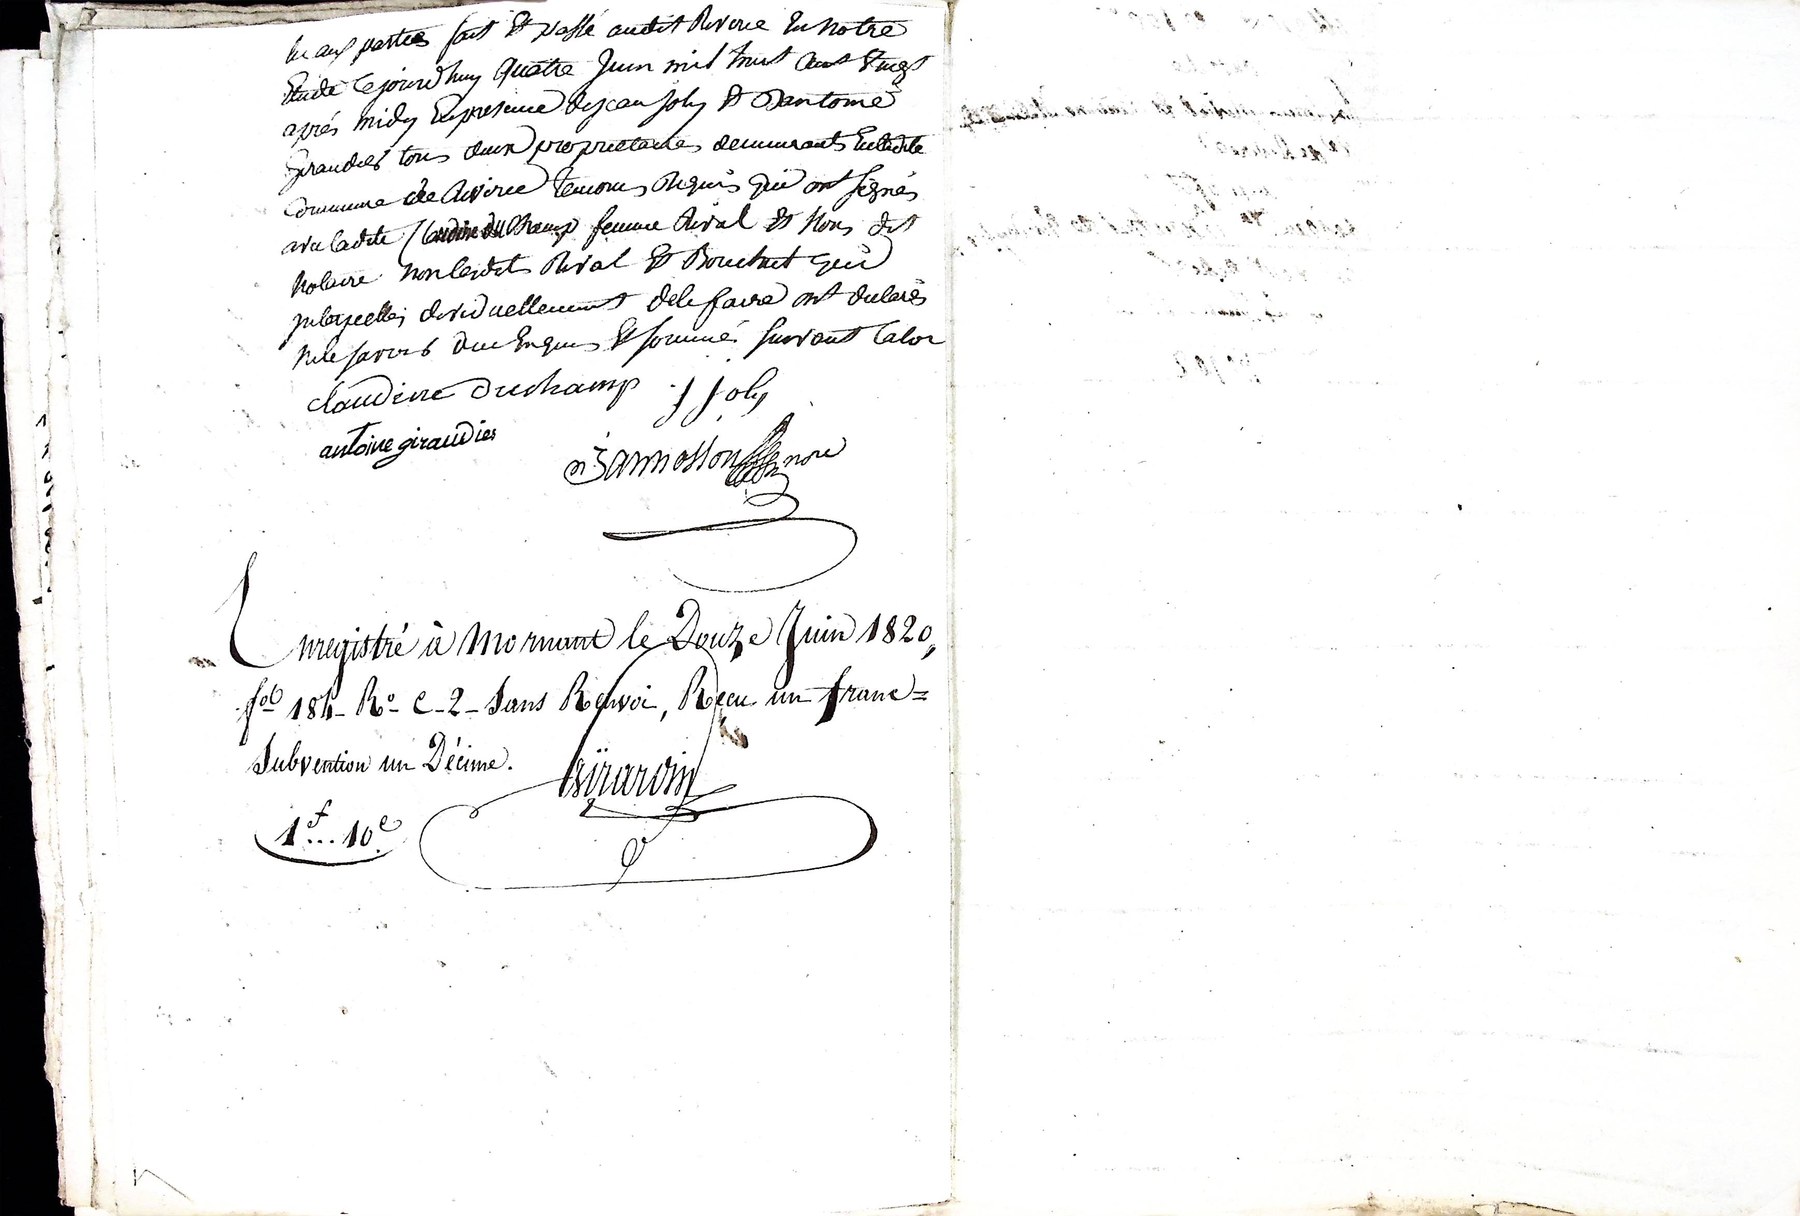 lu aux parties fait et passé audit Riverie En notre
Etude Cejourd'huy quatre Juin mil huit Cent vingt
aprés midy En presence de jean Joly et d'antoine
Giraudier tous deux proprietaires demeurants En ladite
Commune de Riverie temoins requis qui ont signés
avec ladite Claudine du Champ femme Rival et Nous dit
Notaire non lesdits Rival et Bouchut qui
interpellés de le faire ont declarés
ne le savoir de ce Enquis et sommés suivant la loi
Claudine duchamp j joly
antoine giraudier
Enregistré à Mornant le Douze Juin 1820,
fo 184 Ro C. 2 Sans Renvoi, Reçu un franc =
Subvention un Décime. Girardin
1f... 10c